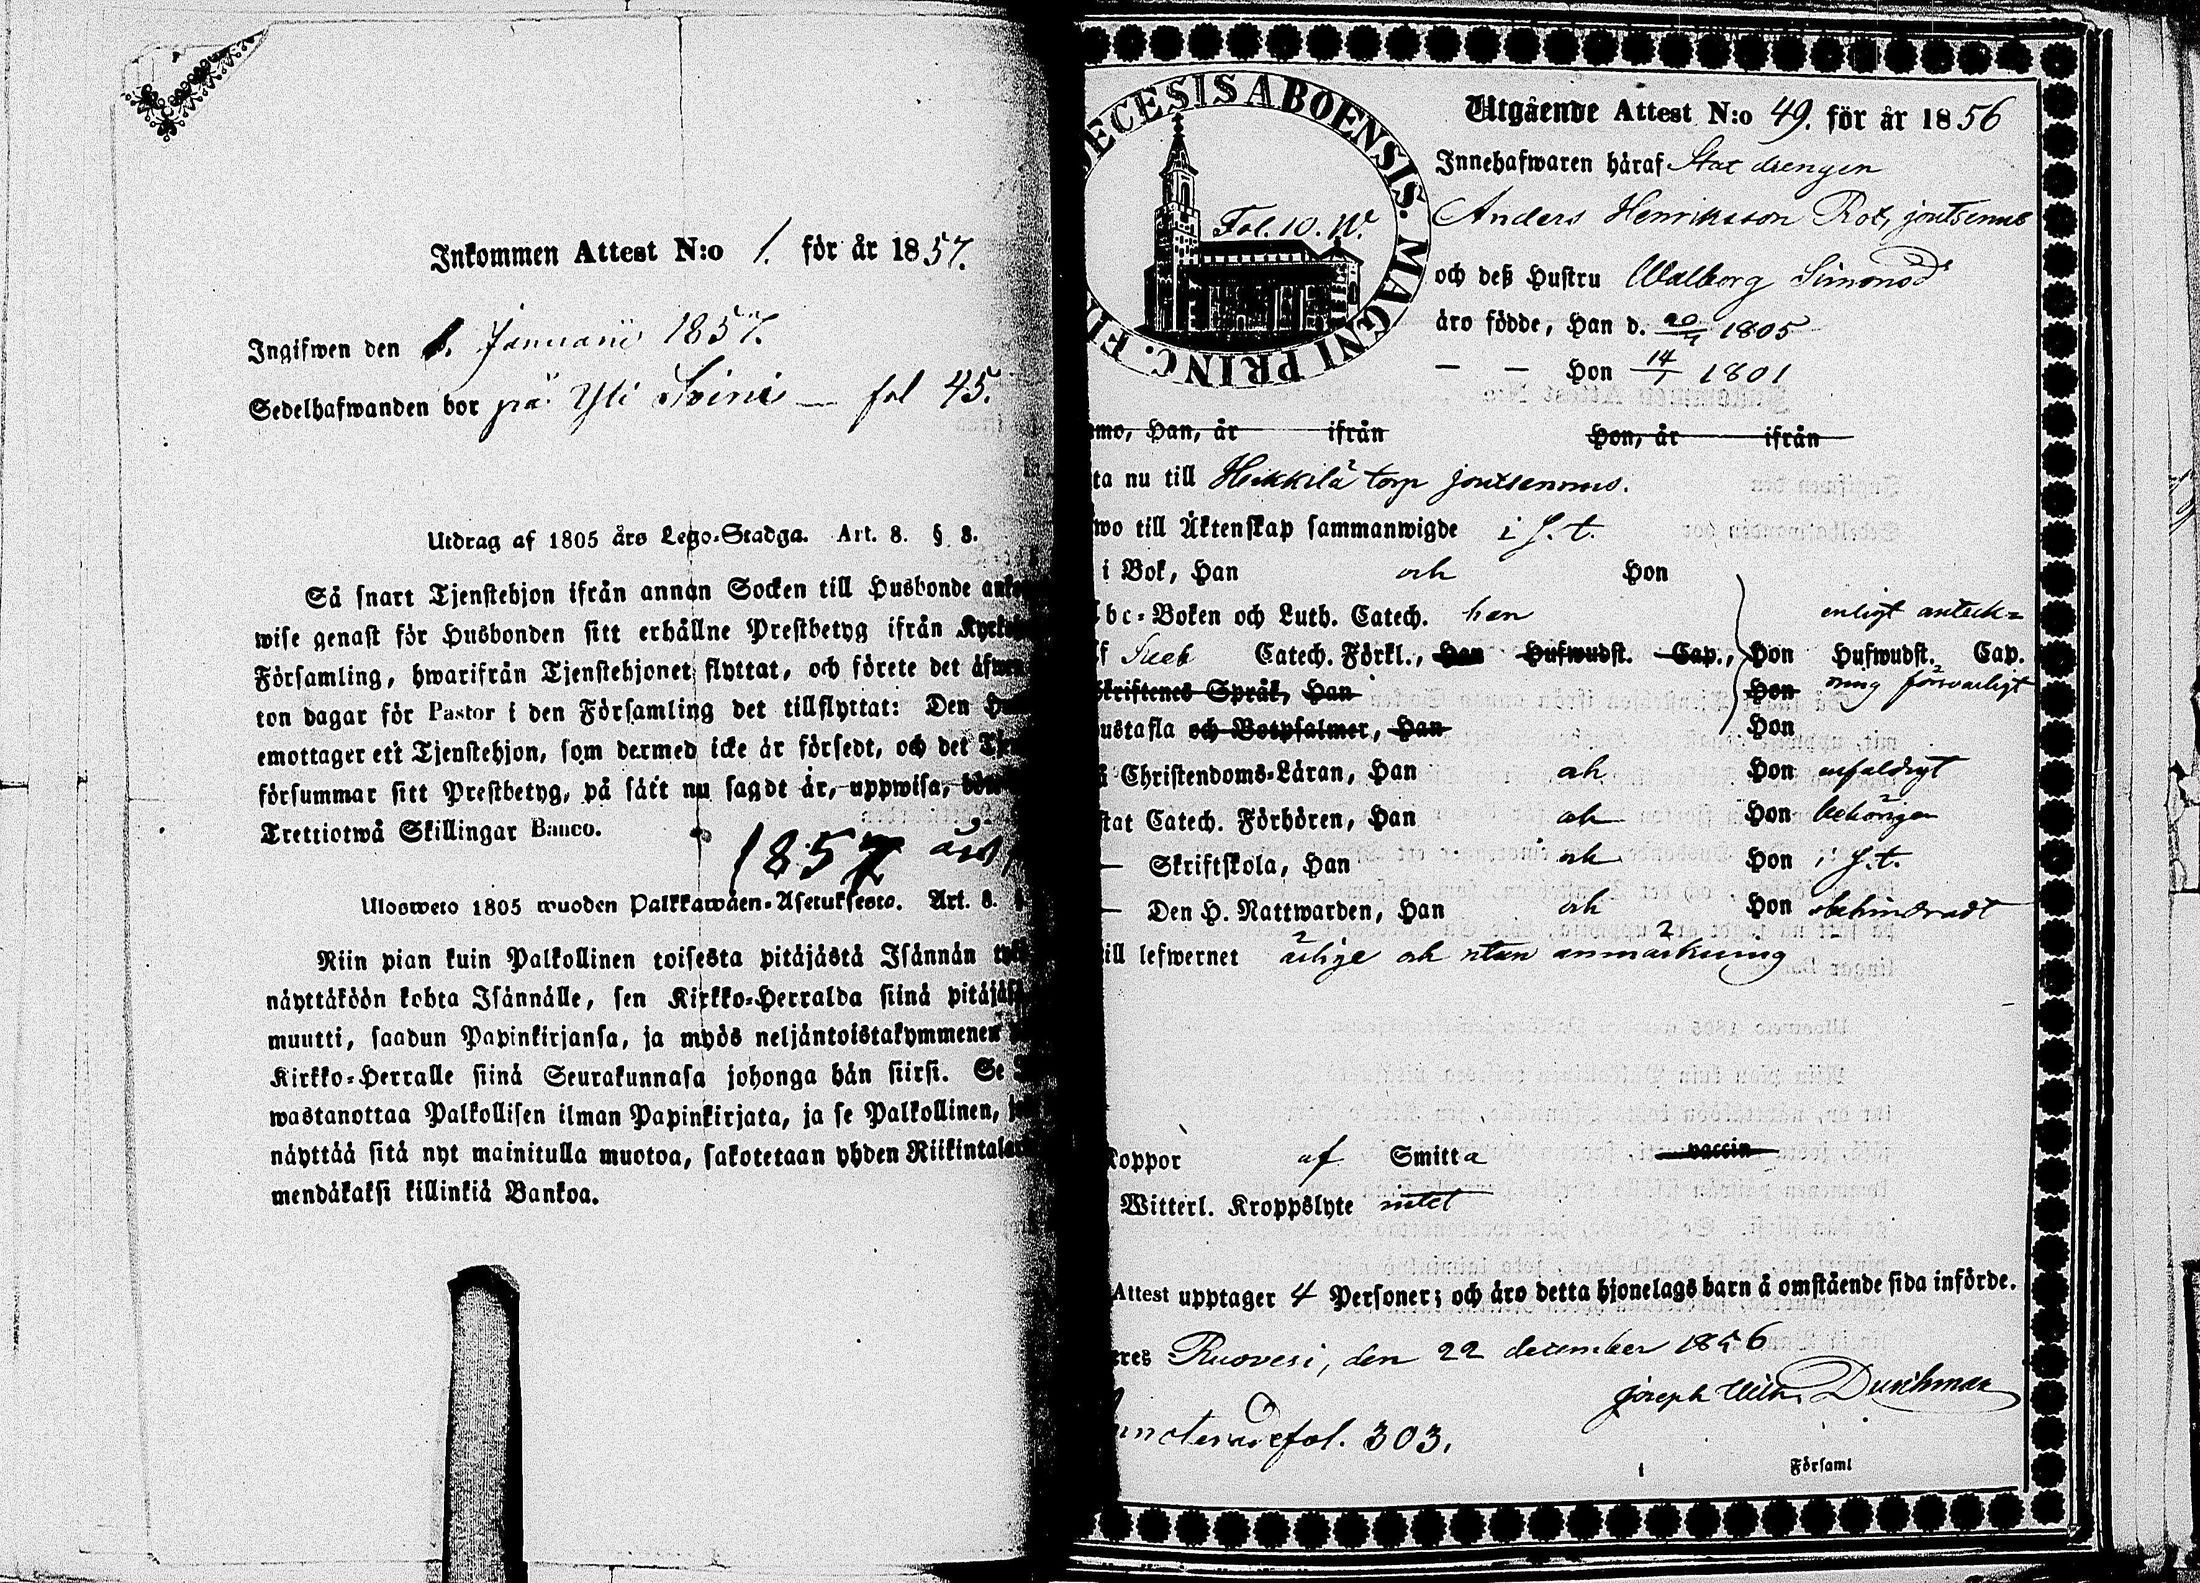 Inkommen Attest N:o 1. för år 1857.
Ingifwen den 1. Januarii 1857.
Sedelhafwanden bor på Yli Soini — fol 45.
Utdrag af 1805 års Lego-Stadga. Art. 8. § 8.
Så snart Tjenstehjon ifrån annan Socken till Husbonde
wise genast för Husbonden sitt erhållne Prestbetyg ifrån
Församling, hwarifrån Tjenstehjonet flyttat, och förete det
ton dagar för Pastor i den Församling det tillflyttat: Den
emottager ett Tjenstehjon, som dermed icke är försedt, och det
försummar sitt Prestbetyg, på sätt nu sagdt är, uppwisa,
Trettiotwå Skillingar Banco.
1857
Ulosweto 1805 wuoden Palkkawäen-Asetuksesta. Art. 8.
Niin pian kuin Palkollinen toisesta pitäjästä Isännän
näyttäköön kohta Isännälle, sen Kirkko-Herralda siinä
muutti, saadun Papinkirjansa, ja myös neljäntoistakymmenen
Kirkko-Herralle siinä Seurakunnasa johonga hän siirsi. Se
wastanottaa Palkollisen ilman Papinkirjata, ja se Palkollinen,
näyttää sitä nyt mainitulla muotoa, sakotetaan yhden
mendäkaksi killinkiä Bankoa.
ECESIS ABOENSIS. MAGNI PRINC. FI
Fol. 10. W.
Utgående Attest N:o 49. för år 1856
Innehafwaren häraf Stat drengen
Anders Henriksson Rot, joutsenno
och deß Hustru Walborg Simonsd
äro födde, Han d. 1805
— — Hon 14/1 1801
Han, är ifrån Hon, är ifrån
ta nu till Heikkilä torp joutsenmo.
till Äktenskap sammanwigde i f. t.
i Bok, Han och Hon
bc-Boken och Luth. Catech. han enligt anteck=
Sveb Catech. Förkl., Han Hufwudst. Cap., Hon Hufwudst. Cap.
Skriftenes Språk, Han Hon ning försvarligt
ustafla och Botpsalmer, Han Hon
Christendoms-Läran, Han och Hon enfaldigt
tat Catech. Förhören, Han och Hon behörigen
— Skriftskola, Han och Hon i f. t.
— Den H. Nattwarden, Han och Hon obehindradt
ill lefwernet ärlige och utan anmärkning
Koppor af Smitta vaccin
Witterl. Kroppslyte intet
Attest upptager 4 Personer; och äro detta hjonelags barn å omstående sida införde.
Ruovesi, den 22 december 1856
Joseph Wilh. Durchman
fol. 303.
Församl